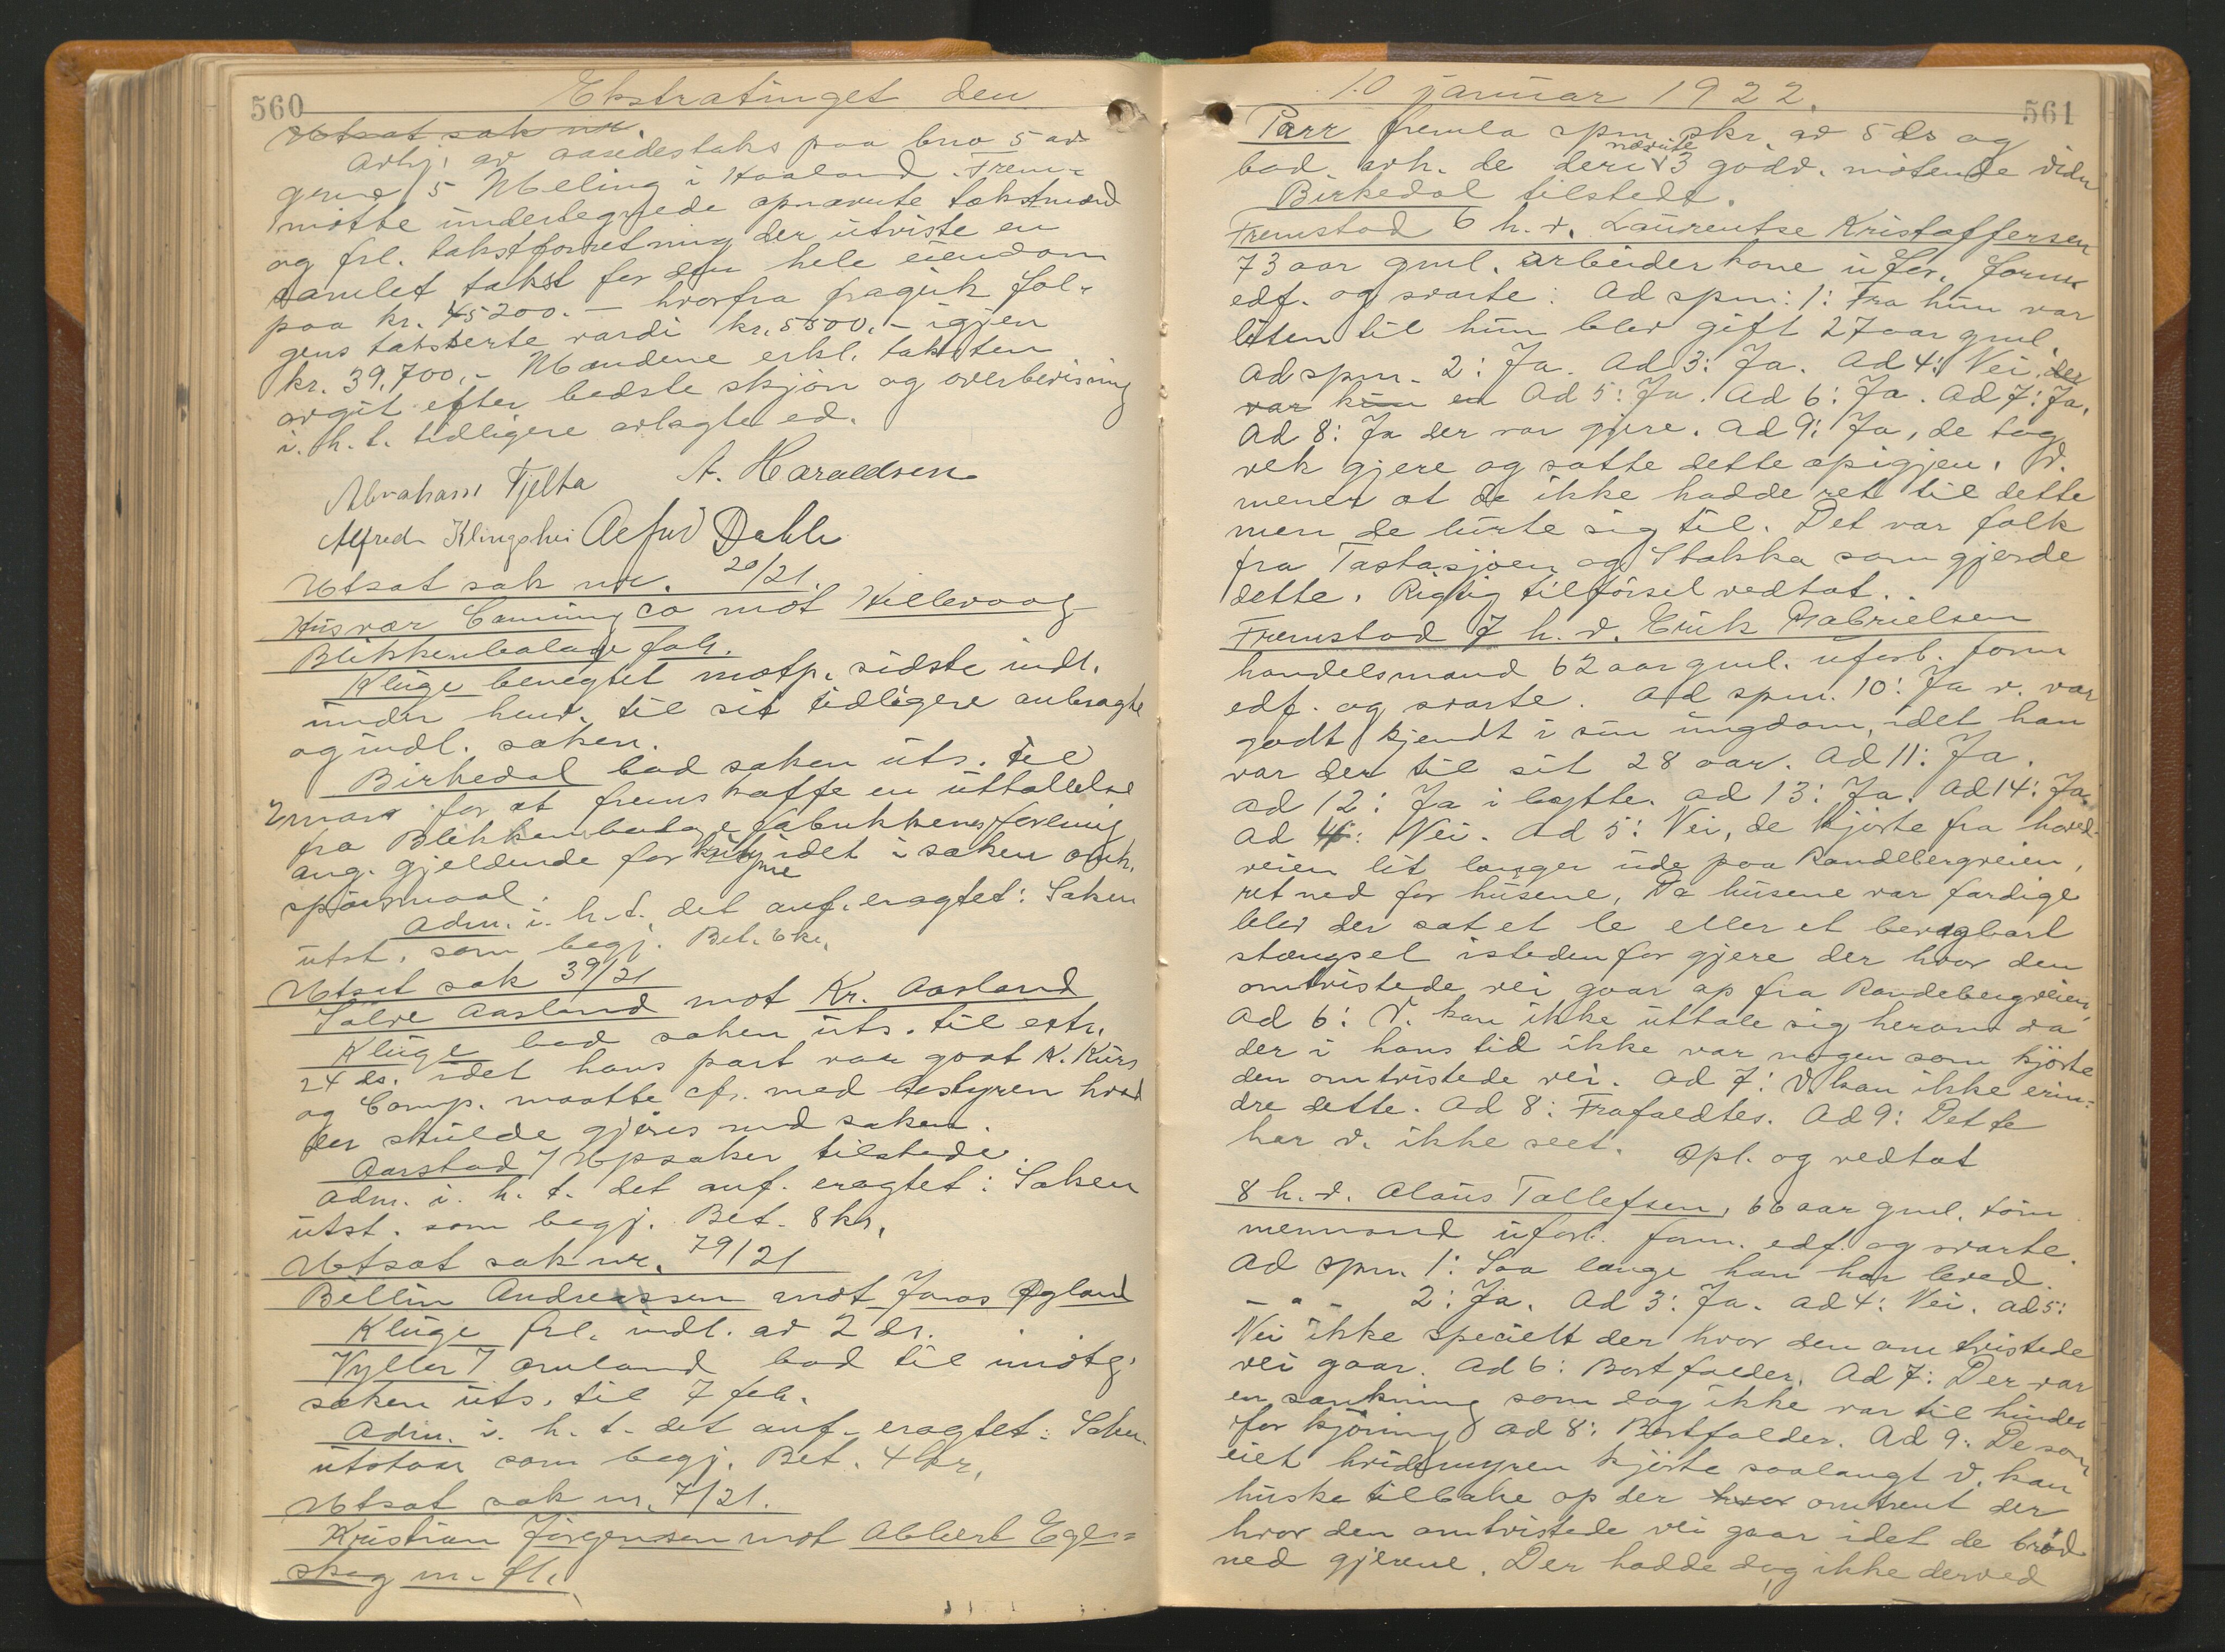 560
Ekstratinget den
Utsat sak nr.
Avhj. av aasædestakst paa bno 5 av
gnrno 5 Meling i Haaland. Frem-
møtte underlegnede opnævnte takstmænd
og frl. takstforretning der utviste en
samlet takst for den hele eiendom
paa kr. 45200.- hvorfra fragik føl-
gens taksterte værdi kr. 5500.- igjen
kr. 39,700.- Mændene erkl. taksten
avgit efter bedste skjøn og overbevisning
i. h. t. tidligere avlagte ed.
Abraham Tjelta A. Haraldsen
Alfred Dahle
Utsat sak nr. 20/21.
Husvær Canning co mot Hillevaag
Blikkemballage fab.
Kluge benegtet motp. sidste indl.
under henv. til sit tidligere anbragte
og indl. saken.
Birkedal bad saken uts. til
2 mars for at fremskaffe en uttalelse
fra Blikkemballagefabrikkenes forening
ang. gjeldende forhold i saken omh.
spørsmaal.
Adm. i. h. t. det anf. eragtet: Saken
utst. som begj. Bet. 6 kr.
Utsat sak 39/21
Salve Aasland mot Kr. Aasland
Kluge bad saken uts. til extr.
24 ds. idet hans part var gaat K. Kurs
og Comp. maatte cfr. med bestyren hvad
der skulde gjøres med saken.
Aarstad / Opsaker tilstede.
Adm. i. h. t. det anf. eragtet: Saken
utst. som begj. Bet. 8 kr.
Utsat sak nr. 79/21
Bellin Andreassen mot Jonas Øgland
Kluge frl. indl. av 2 ds.
Vyller / Omland bad til imøteg.
saken uts. til 7 feb.
Adm. i. h. t. det anf. eragtet: Saken
utstaar som begj. Bet. 4 kr.
Utsat sak nr. 7/21.
Kristian Jørgensen mot Albert Ege-
skog m. fl.
10 januar 1922.
561
Parr fremla spm. skr. av 5 ds og
bad avh. de deri nævnte 3 godv. møtende vidner
Birkedal tilstede.
Fremstod 6 h. v. Laurentse Kristoffersen
73 aar gml. arbeiderkone ufor. form.
edf. og svarte: Ad spm: 1: Fra hun var
liten til hun blev gift 27 aar gml.
Ad spm. 2: Ja. Ad 3: Ja. Ad 4: Nei. der
var kun en Ad 5: Ja. Ad 6: Ja. Ad 7: Ja.
Ad 8: Ja der var gjære. Ad 9: Ja, de tog
vek gjære og satte dette opigjen. V.
mener at de ikke hadde ret til dette
men de lurte sig til. Det var folk
fra Tastasjøen og Stokka som gjorde
dette. Rigtig tilførsel vedtat.
Fremstod 7 h. v. Erik Gabrielsen
handelsmand 62 aar gml. uforb. form
edf. og svarte. Ad spm. 10: Ja v. var
godt kjendt i sin ungdom, idet han
var der til sit 28 aar. Ad 11: Ja.
Ad 12: Ja i løgtte. Ad 13: Ja. Ad 14: Ja.
Ad 4: Nei. Ad 5: Nei, de kjørte fra hoved-
veien lit længer ude paa Randebergveien,
ret ned for husene, Da husene var færdige
blev der sat et le eller et bevægbart
stængsel istedenfor gjære der hvor den
omtvistede vei gaar op fra Randebergveien.
Ad 6: V. kan ikke uttale sig herom da
der i hans tid ikke var nogen som kjørte
den omtvistede vei. Ad 7: V. kan ikke erin-
dre dette. Ad 8: Frafaldtes. Ad 9: Dette
har v. ikke seet. Opl. og vedtat
8 h. v. Olaus Tollefsen, 66 aar gml. tøm
mermand uforb. form. edf. og svarte.
Ad spm. 1: Saa længe han har leved.
- " - 2: Ja. Ad 3: Ja. Ad 4: Nei. Ad 5:
Nei ikke specielt der hvor den omtvistede
vei gaar. Ad 6: Bortfalder. Ad 7: Der var
en sænkning som dog ikke var til hinder
for kjøring Ad 8: Bortfalder. Ad 9: De som
eiet hvidemyren kjørte saalangt V. kan
huske tilbake op der hvor omtrent der
hvor den omtvistede vei gaar idet de brød
ned gjærene. Der hadde dog ikke derved